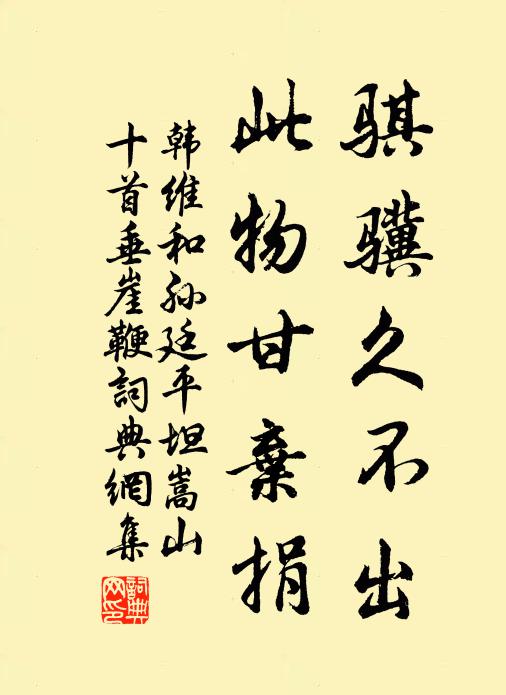 骐骥久不出
此物甘棄捐
韩维和孙廷平坦嵩山
十首垂崖鞭詞典網集
詞典网印